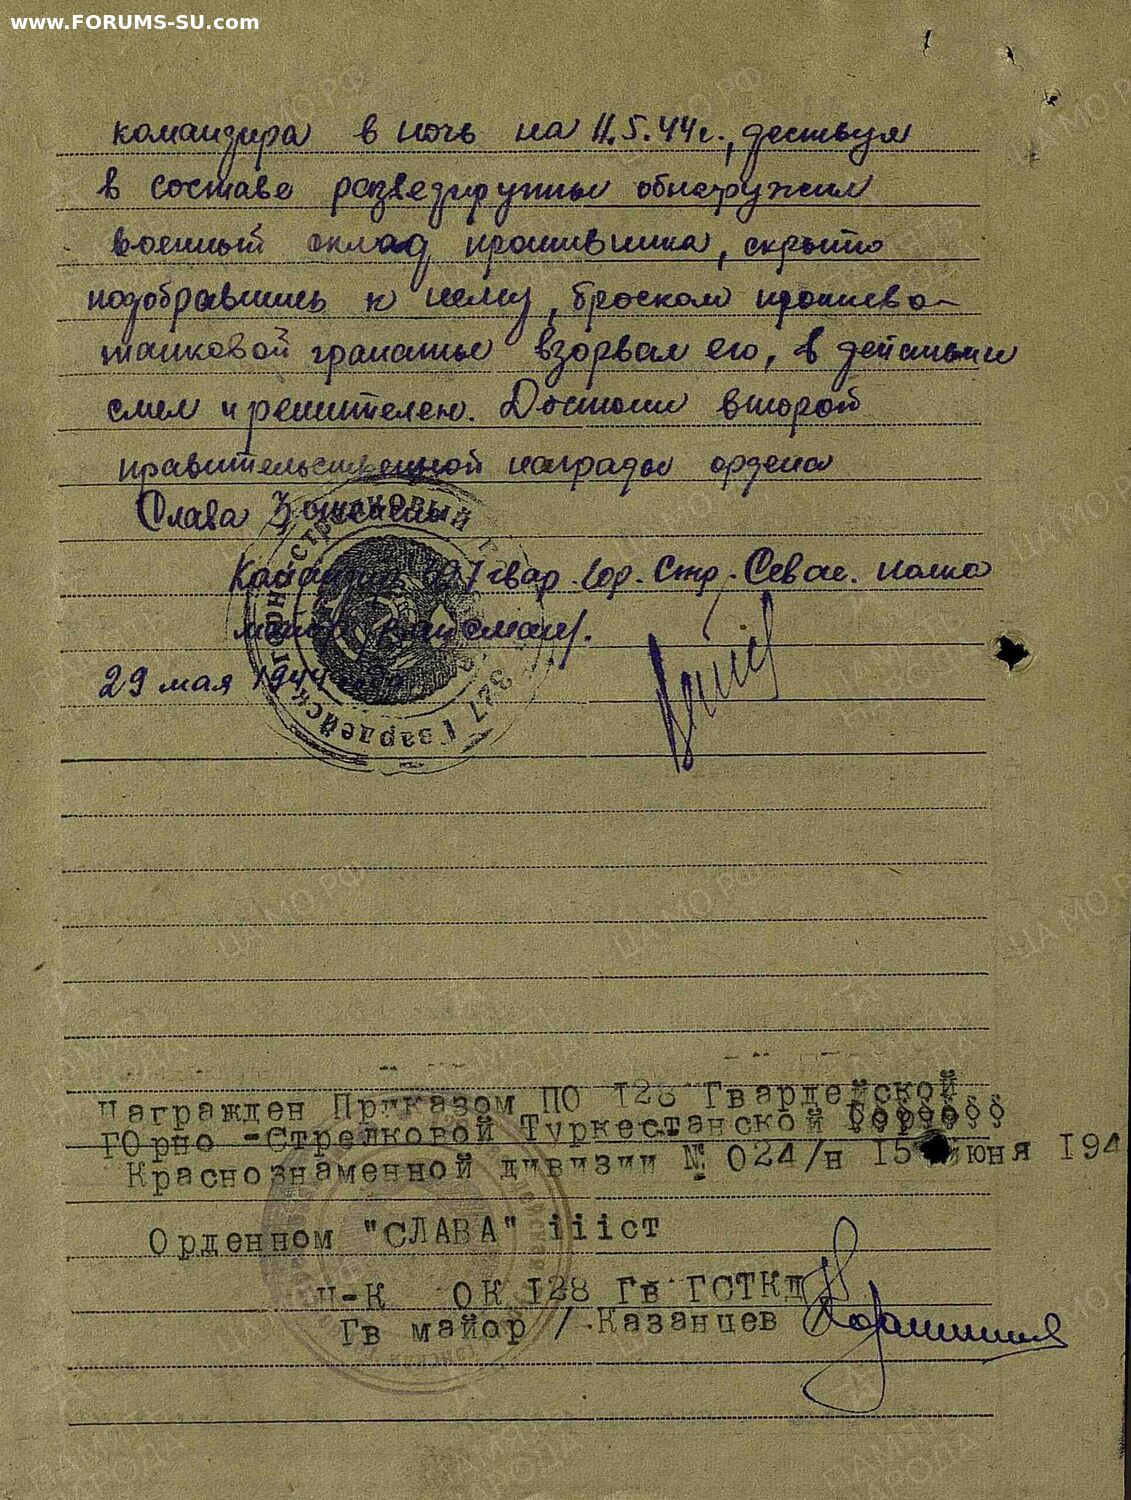 www.FORUMS-SU.com
командира в ночь на 11.5.44г., действуя
в составе разведгруппы обнаружил
военный склад противника, скрыто
подобравшись к нему, броском противо-
танковой гранаты взорвал его, в действии
смел и решителен. Достоин второй
правительственной награды ордена
Слава
327 гвар. Гор. Стр. Севас. полка
майор
29 мая 1944
горнострелковый
327 Гвардейск
Награжден Приказом ПО 128 Гвардейской
ГОрно -Стрелковой Туркестанской
Краснознаменной дивизии № 024/н 15 июня 194
Орденном "СЛАВА" iiiст
Н-К ОК 128 Гв ГСТКД
Гв майор / Казанцев
ЦА МО РФ
ПАМЯТЬ НАРОДА